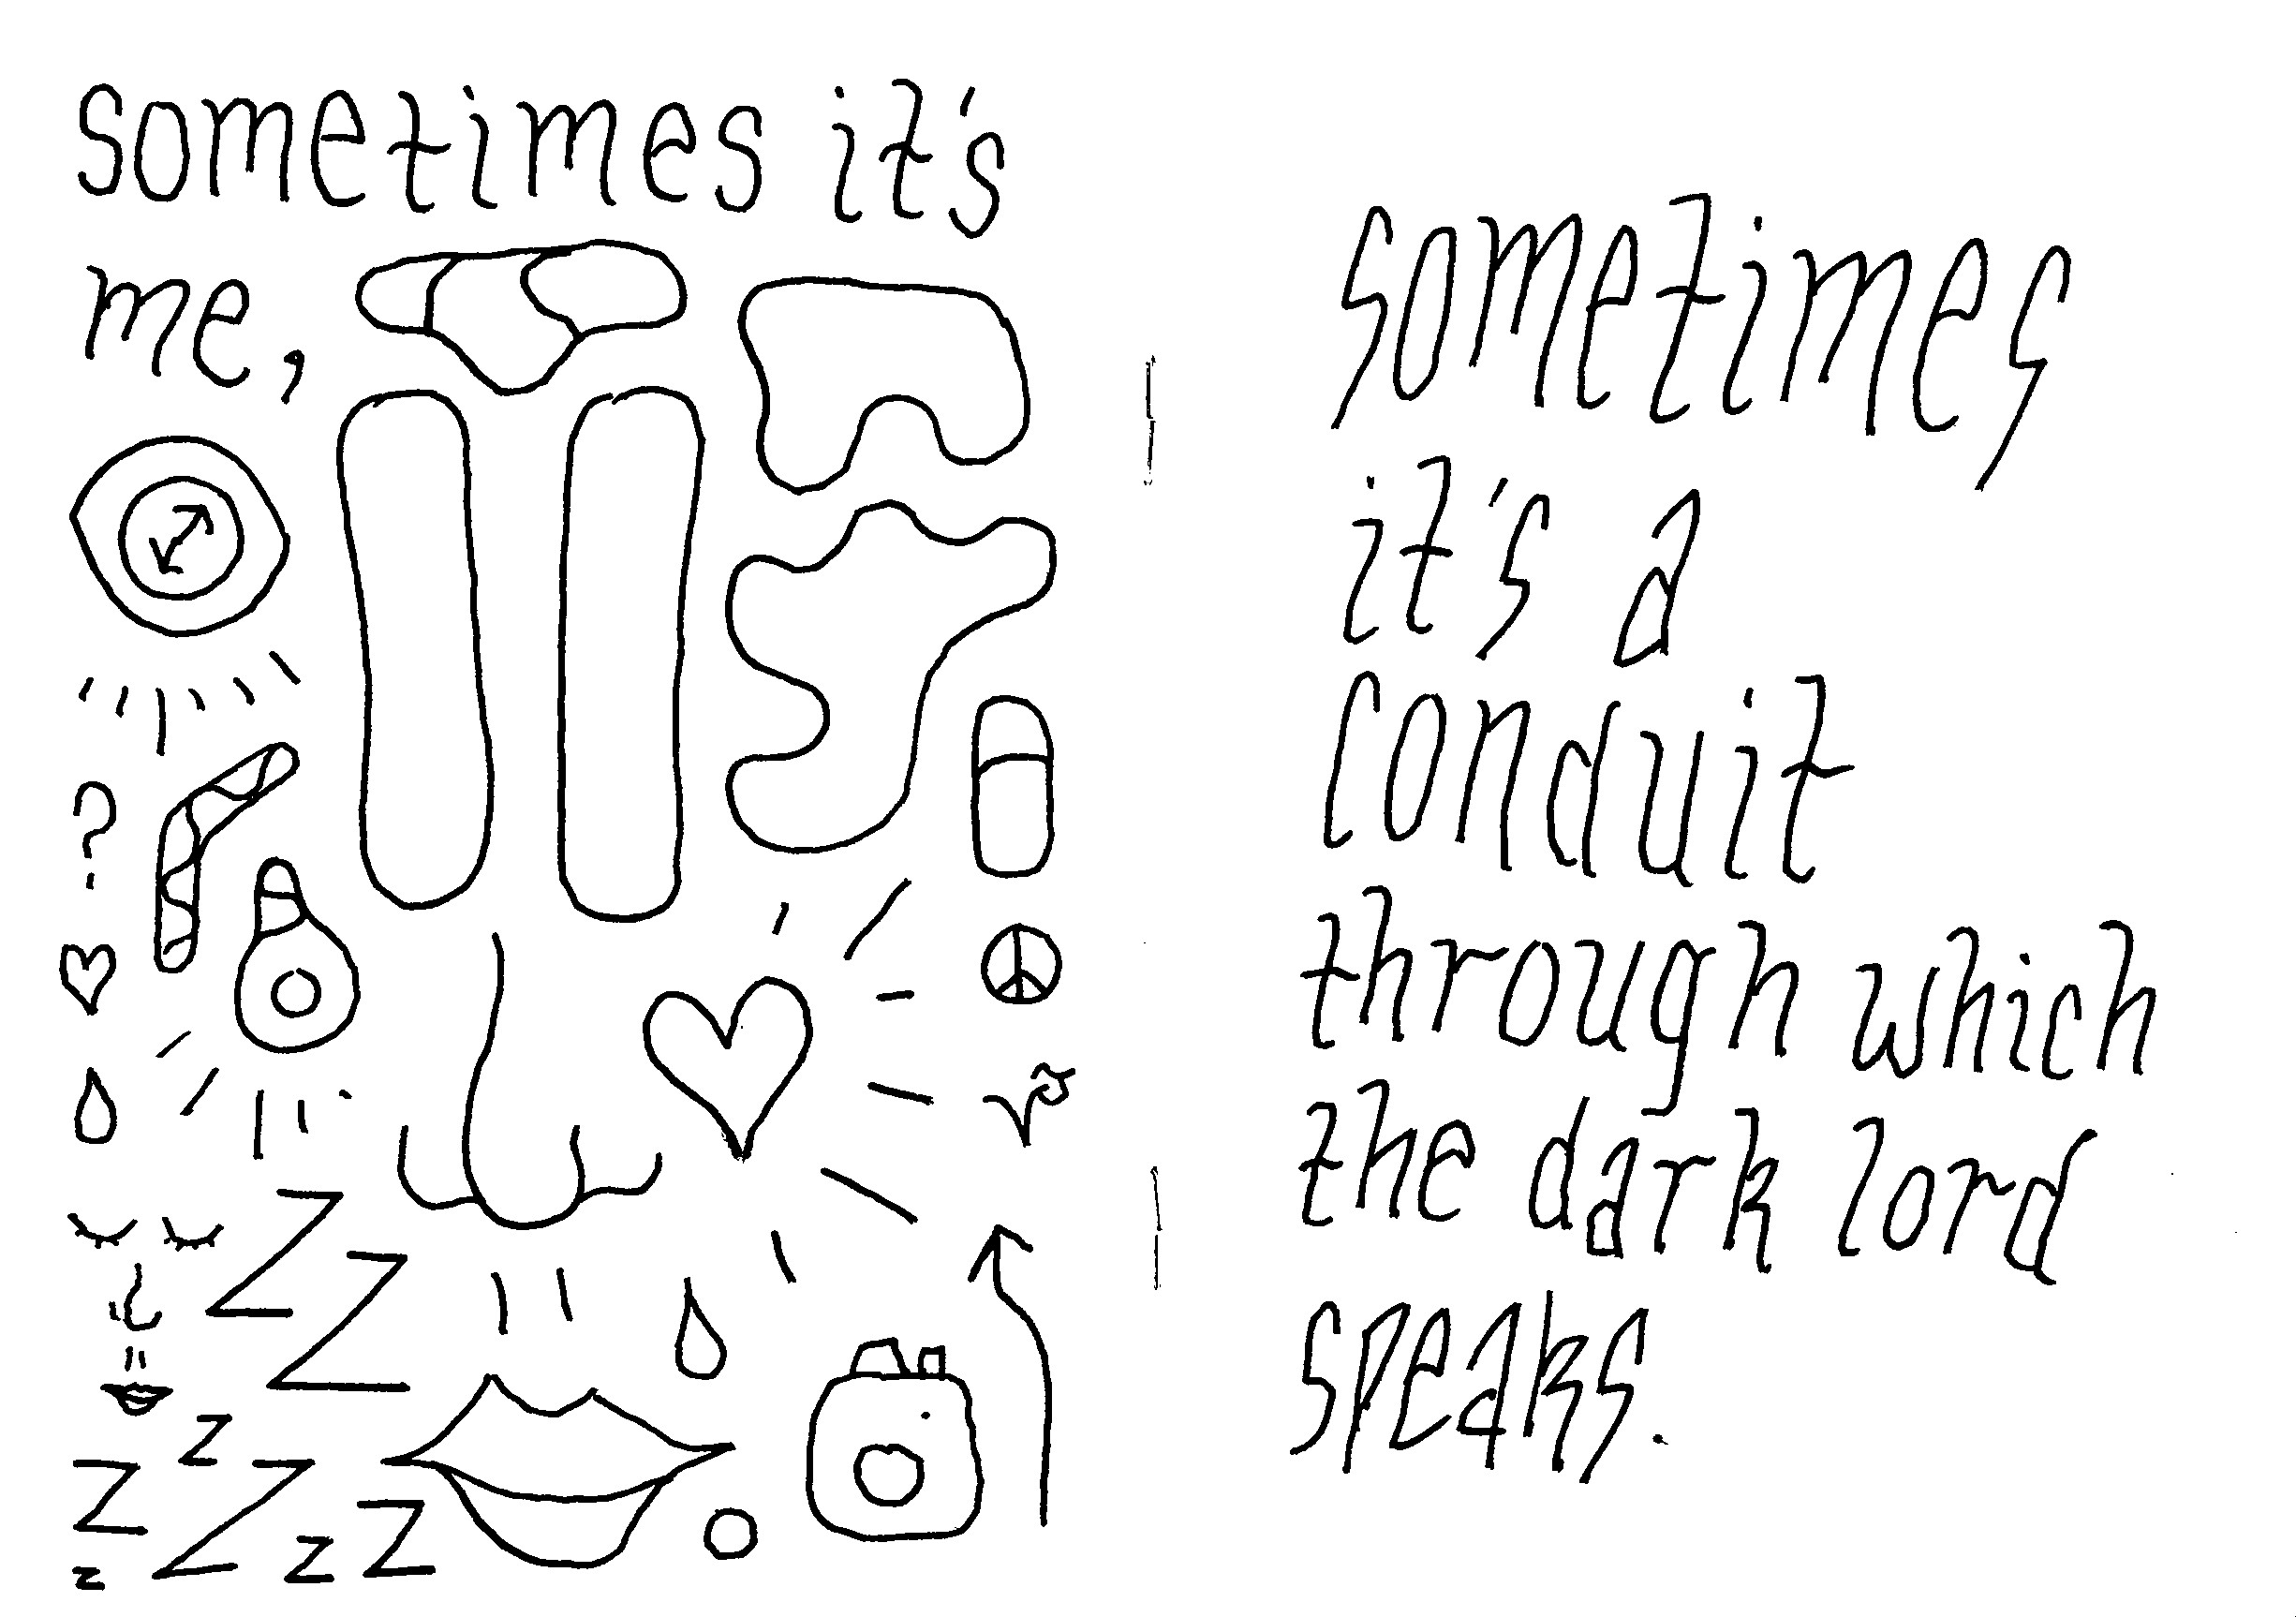 sometimes it's
me,
?
z
z
z
z
z
z
z
z
sometimes
it's a
conduit
through which
the dark lord
speaks.